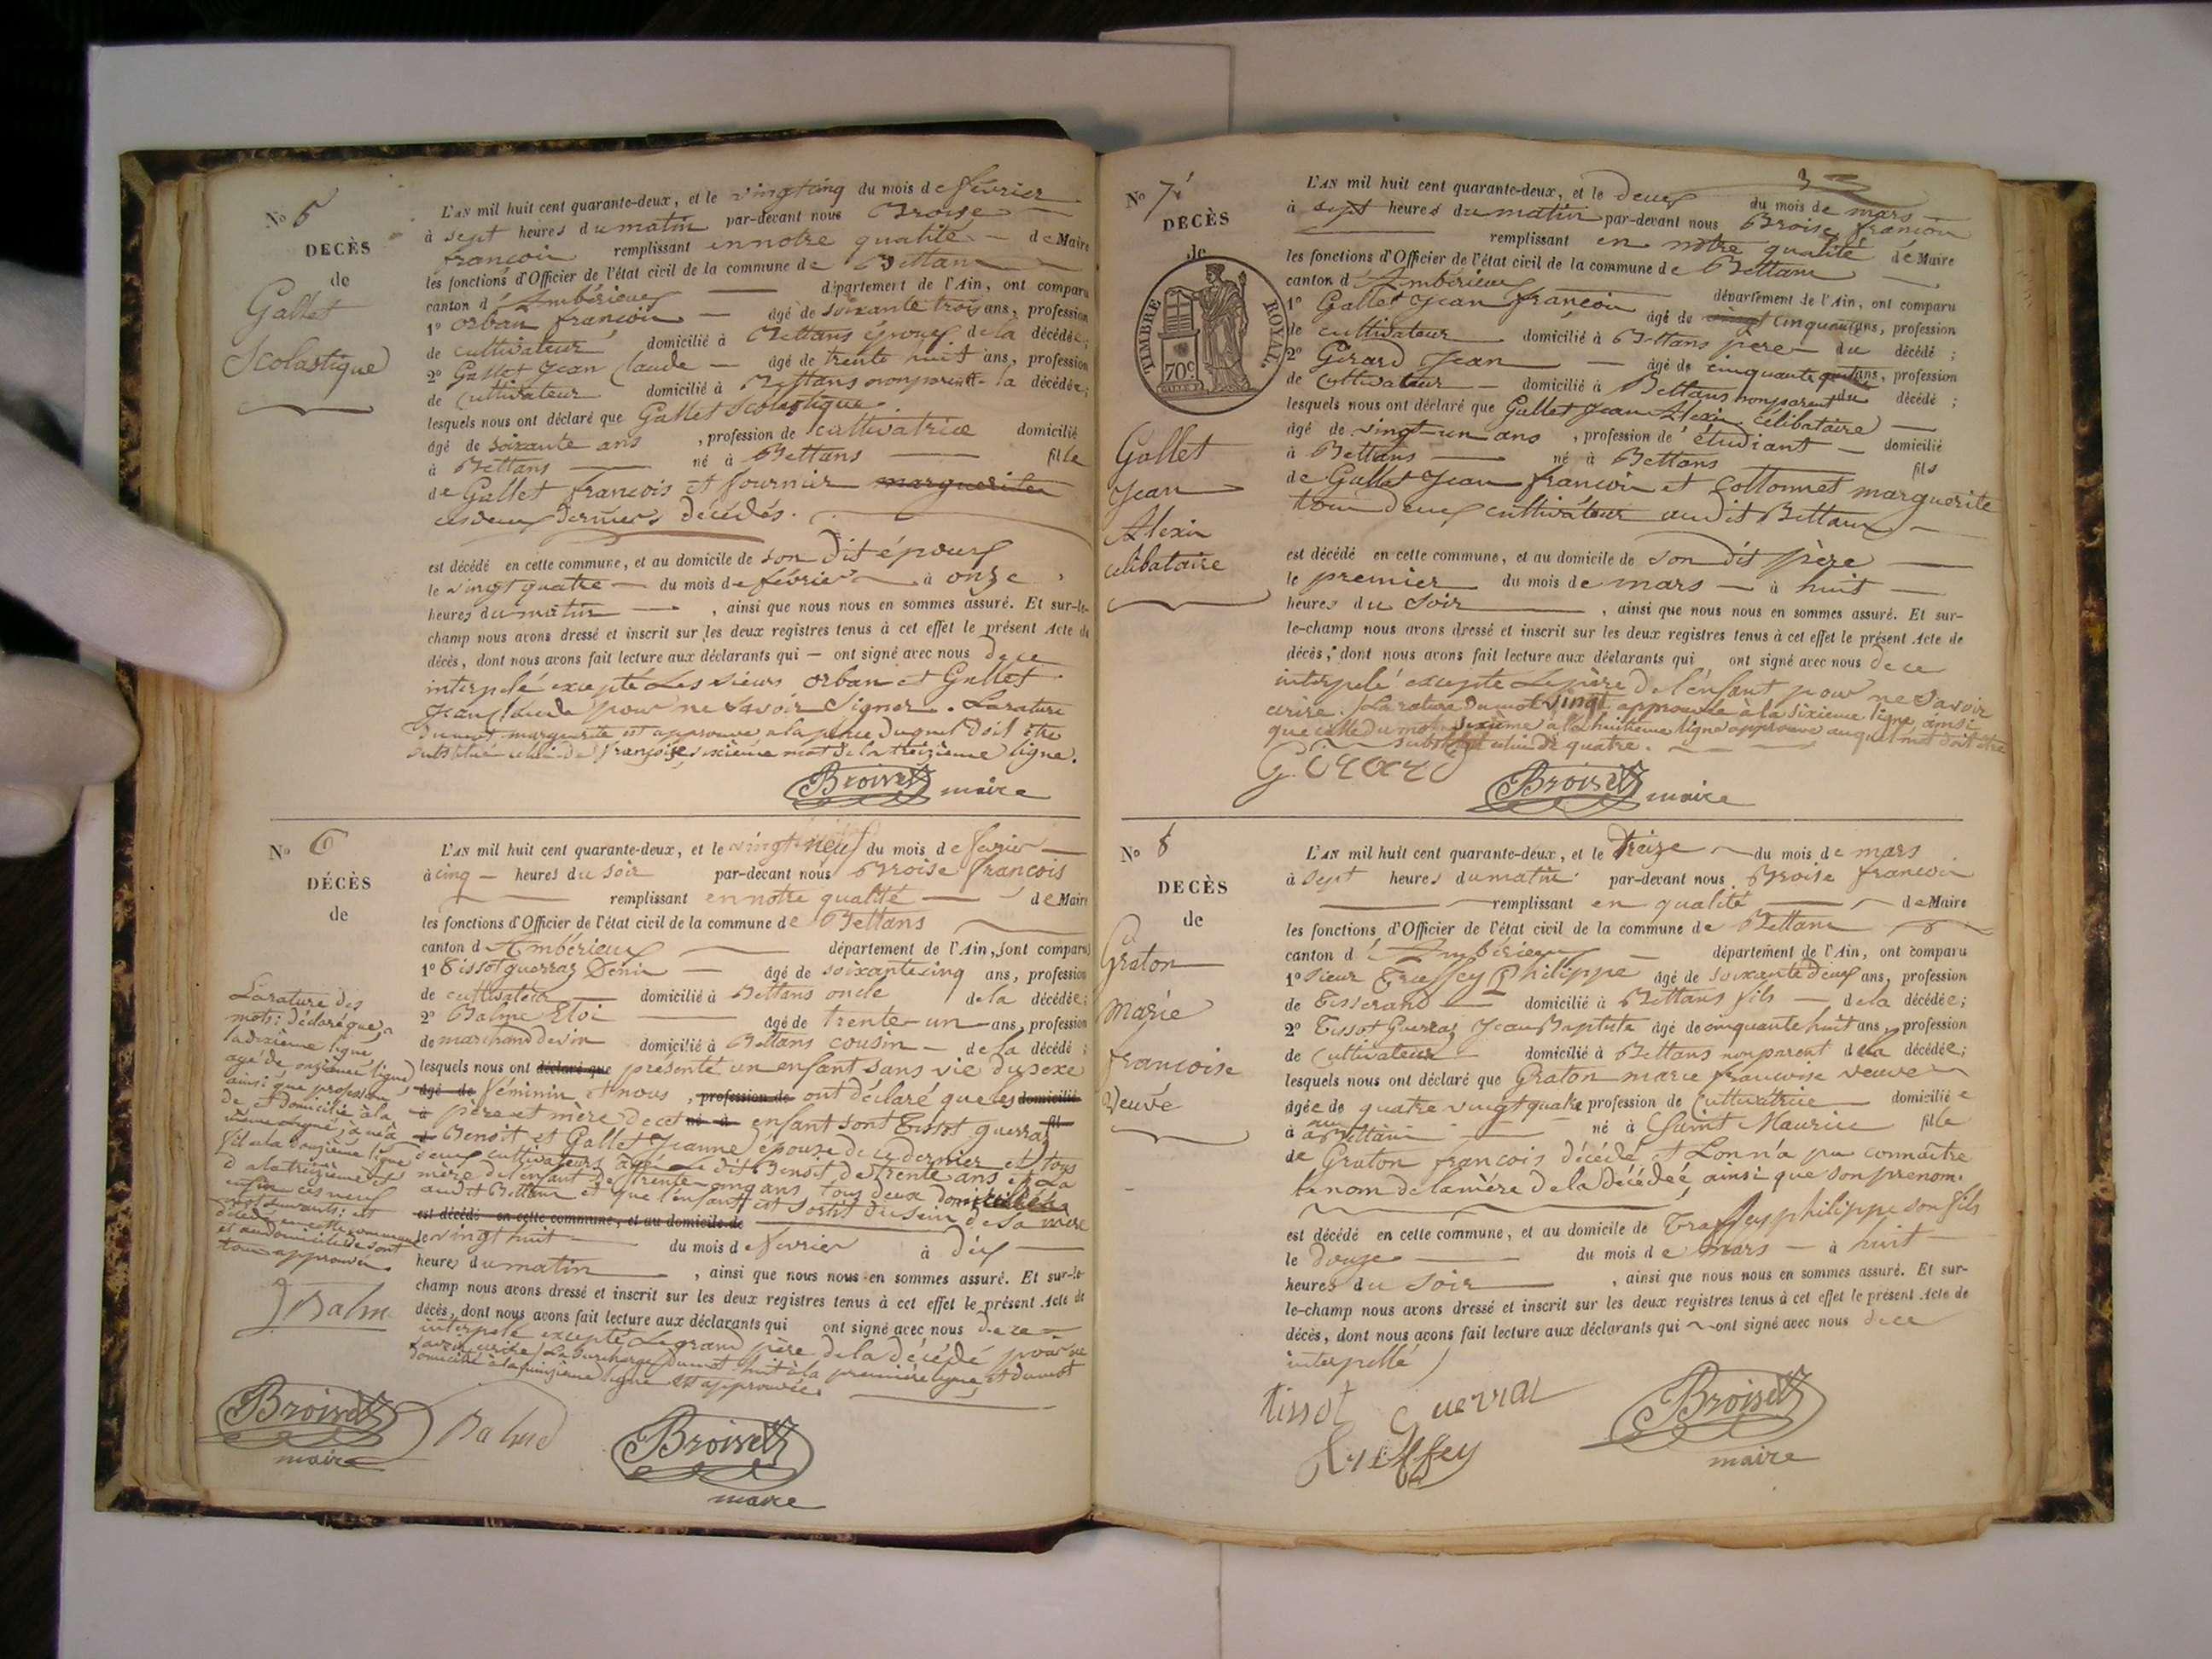 No 5
DECÈS
de
Gallet
Scolastique
L'AN mil huit cent quarante-deux, et le vingt cinq du mois de février
à sept heures du matin par-devant nous Broise
françois remplissant en notre qualité de Maire
les fonctions d'Officier de l'état civil de la commune de Bettans
canton d'Ambérieux département de l'Ain, ont comparu
1o Orban françois âgé de soixante trois ans, profession
de cultivateur domicilié à Bettans époux de la décédée;
2o Gallet Jean Claude âgé de trente huit ans, profession
de Cultivateur domicilié à Bettans non parent de la décédée;
lesquels nous ont déclaré que Gallet Scolastique
âgé de soixante ans, profession de cultivatrice domicilié
à Bettans né à Bettans fille
de Gallet françois et fournier marguerite
ces deux derniers décédés.
est décédé en cette commune, et au domicile de son dit époux
le vingt quatre du mois de février à onze
heures du matin, ainsi que nous nous en sommes assuré. Et sur-le-
champ nous avons dressé et inscrit sur les deux registres tenus à cet effet le présent Acte de
décès, dont nous avons fait lecture aux déclarants qui — ont signé avec nous de ce
interpelé excepté les sieurs Orban et Gallet
Jean Claude pour ne savoir signer. La rature
du mot marguerite est approuvé a la place duquel doit être
substitué celui de françoise sixième mot de la treizième ligne.
Broise maire
No 6
DÉCÈS
de
L'AN mil huit cent quarante-deux, et le vingt neuf du mois de février
à cinq heures du soir par-devant nous Broise françois
remplissant en notre qualité de Maire
les fonctions d'Officier de l'état civil de la commune de Bettans
canton d'Ambérieux département de l'Ain, sont comparus
1o Tissot guerraz Denis âgé de soixante cinq ans, profession
de cultivateur domicilié à Bettans oncle de la décédée;
2o Balme Eloi âgé de trente-un ans, profession
de marchand de vin domicilié à Bettans cousin de la décédé;
lesquels nous ont déclaré que présenté un enfant sans vie du sexe
âgé de féminin et nous, profession de ont déclaré que les domicilié
à père et mère de cet né à enfant sont Tissot guerraz fil
d Benoit et Gallet Jeanne épouse de ce dernier et tous
deux cultivateurs âgé le dit Benoit de trente ans et la
mère de l'enfant de trente cinq ans tous deux domiciliés
audit Bettans et que l'enfant est sortit du sein de sa mère
est décédé en cette commune, et au domicile de
le vingt huit du mois de février à dix
heures du matin, ainsi que nous nous en sommes assuré. Et sur-le-
champ nous avons dressé et inscrit sur les deux registres tenus à cet effet le présent Acte de
décès, dont nous avons fait lecture aux déclarants qui ont signé avec nous de ce
interpelé excepté le grand père de la décédé pour ne
savoir écrire. La surcharge du mot huit à la première ligne, et du mot
domicilié à la quinzième ligne est approuvée.
La rature des
mots: déclaré que, a
la dixième ligne,
agé de onzième ligne,
ainsi que profession
de et domicilié à la
même ligne; à né à
fil a la douzième ligne
d a la treizième et
enfin ces neuf
mots suivants: est
décédé en cette commune
et au domicile de sont
tous approuvés.
Balme
Broise maire
Balme
Broise maire
No 7
DECÈS
de
TIMBRE ROYAL.
70c
Gallet
Jean
Alexis
célibataire
3
L'AN mil huit cent quarante-deux, et le deux du mois de mars
à sept heures du matin par-devant nous Broise françois
remplissant en notre qualité de Maire
les fonctions d'Officier de l'état civil de la commune de Bettans
canton d'Ambérieux département de l'Ain, ont comparu
1o Gallet Jean françois âgé de vingt cinquante ans, profession
de cultivateur domicilié à Bettans père du décédé;
2o Girard Jean âgé de cinquante ans, profession
de Cultivateur domicilié à Bettans non parent du décédé;
lesquels nous ont déclaré que Gallet Jean Alexis célibataire
âgé de vingt-un ans, profession de étudiant domicilié
à Bettans né à Bettans fils
de Gallet Jean françois et Cottonnet marguerite
tous deux cultivateur audit Bettans
est décédé en cette commune, et au domicile de son dit père
le premier du mois de mars à huit
heures du soir, ainsi que nous nous en sommes assuré. Et sur-
le-champ nous avons dressé et inscrit sur les deux registres tenus à cet effet le présent Acte de
décès, dont nous avons fait lecture aux déclarants qui ont signé avec nous de ce
interpelé excepté le père de l'enfant pour ne savoir
écrire. La rature du mot vingt approuvée à la sixième ligne ainsi
que celle du mot sixième à la huitième ligne approuvé auquel mot doit être
substitué celui de quatre.
Girard
Broise maire
No 8
DECÈS
de
Graton
marie
francoise
Veuve
L'AN mil huit cent quarante-deux, et le Treize du mois de mars
à sept heures du matin par-devant nous Broise françois
remplissant en qualité de Maire
les fonctions d'Officier de l'état civil de la commune de Bettans
canton d'Ambérieux département de l'Ain, ont comparu
1o Sieur Trèffey Philippe âgé de soixante deux ans, profession
de Tisserand domicilié à Bettans fils de la décédée;
2o Tissot Guerraz Jean Baptiste âgé de cinquante huit ans, profession
de Cultivateur domicilié à Bettans non parent de la décédée;
lesquels nous ont déclaré que Graton marie francoise veuve
âgée de quatre vingt quatre profession de Cultivatrice domicilié e
à Bettans né à Saint Maurice fille
de Graton françois décédé et Lon n'a pu connaitre
le nom de la mère de la décédée, ainsi que son prenom.
est décédé en cette commune, et au domicile de Treffey philippe son fils
le douze du mois de mars à huit
heures du soir, ainsi que nous nous en sommes assuré. Et sur-
le-champ nous avons dressé et inscrit sur les deux registres tenus à cet effet le présent Acte de
décès, dont nous avons fait lecture aux déclarants qui ont signé avec nous de ce
interpellé
tissot Guerraz
Treffey
Broise maire